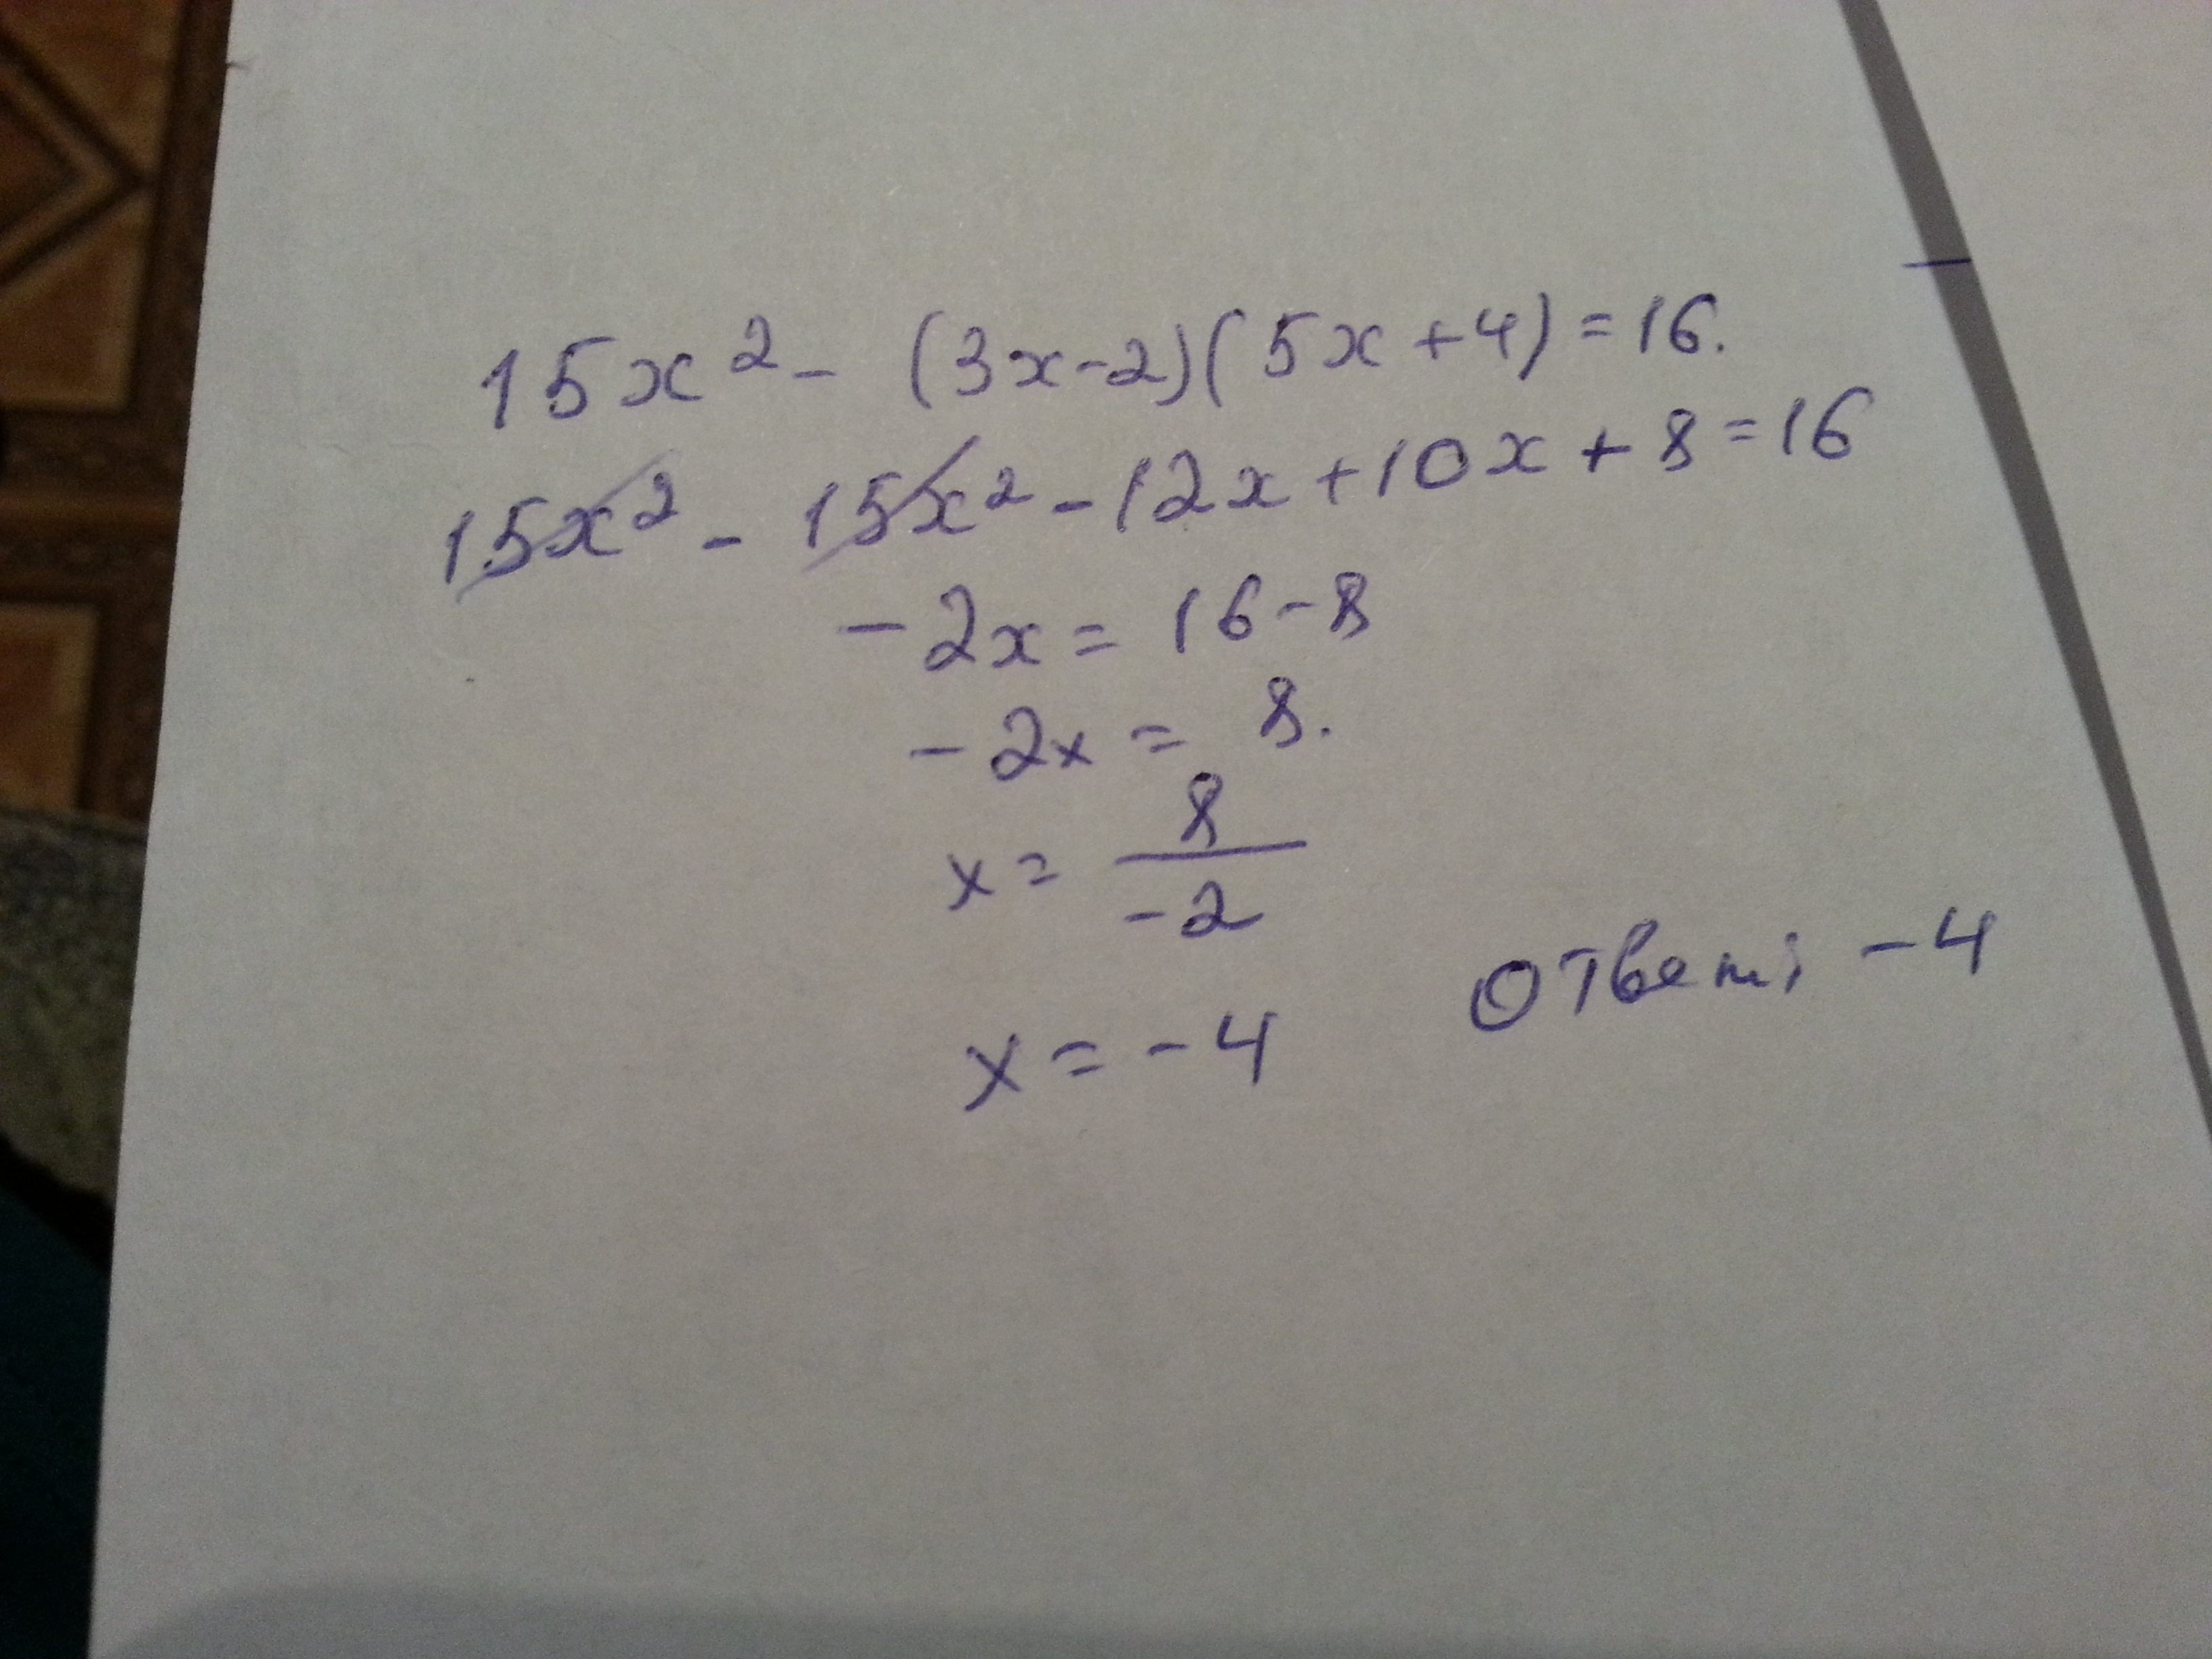 15x² - (3x-2)(5x+4) = 16.
15x² - 15x² - 12x + 10x + 8 = 16
-2x = 16-8
-2x = 8.
x = 8/-2
x = -4
Ответ: -4